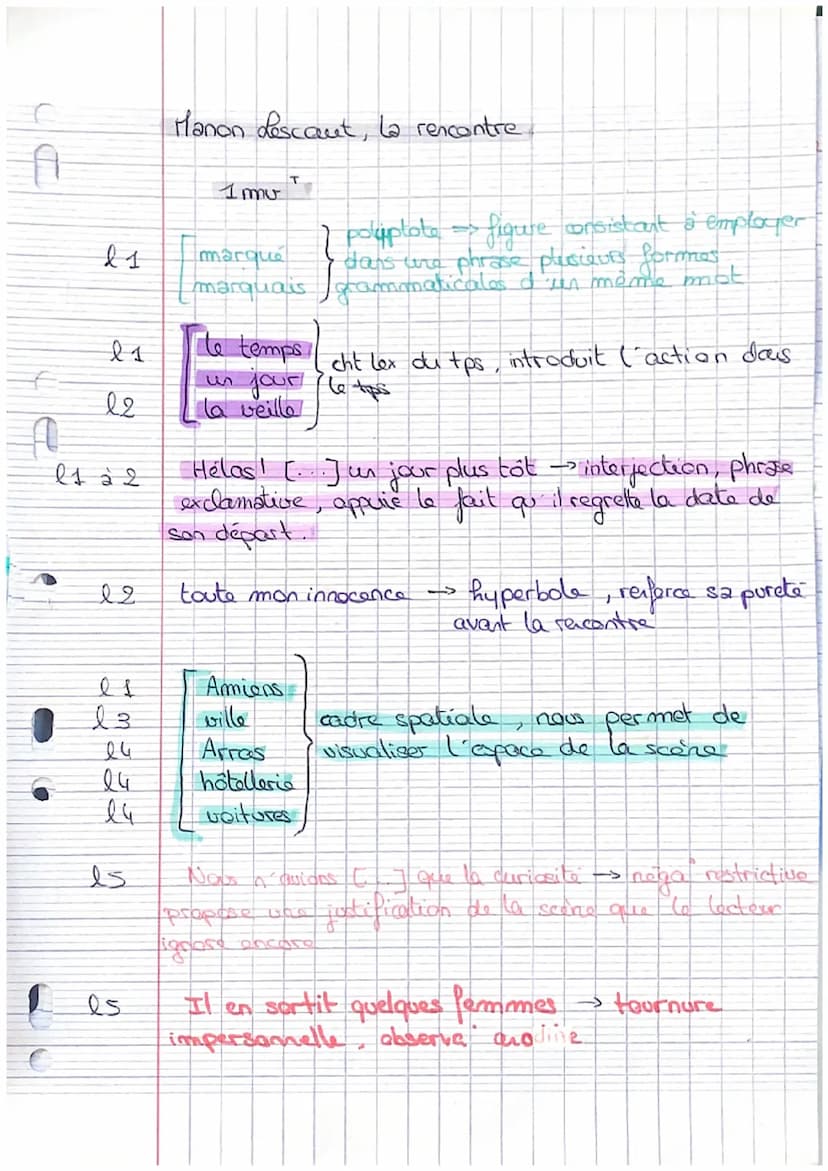 Manon Lescaut, la rencontre
1 mvT
polyptote => figure consistant à employer
l1 marqué dans une phrase plusieurs formes
marquais grammaticales d'un même mot
l1 le temps
cht lex du tps, introduit l'action dans
un jour le tps
l2 la veille
l1 à 2 Hélas! [...] un jour plus tôt → interjection, phrase
exclamative, appuie le fait qu'il regrette la date de
son départ.
l2 toute mon innocence → hyperbole, renforce sa pureté
avant la rencontre
l1 Amiens
l3 ville cadre spatiale, nous permet de
l4 Arras visualiser l'espace de la scène
l4 hôtellerie
l4 voitures
l5 Nous n'avions [...] que la curiosité → néga° restrictive
propose une justification de la scène que le lecteur
ignore encore
l5 Il en sortit quelques femmes → tournure
impersonnelle, observa° anodine